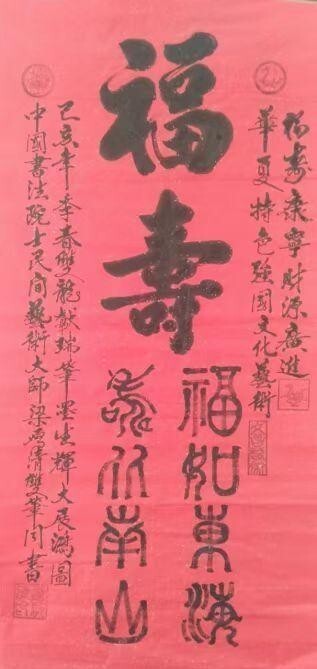 福寿康寧財源廣進
華夏特色強國文化藝術
福壽
福如東海
壽比南山
己亥年季春雙龍獻瑞筆墨生輝大展鴻圖
中國書法院士民間藝術大師梁雙筆同書